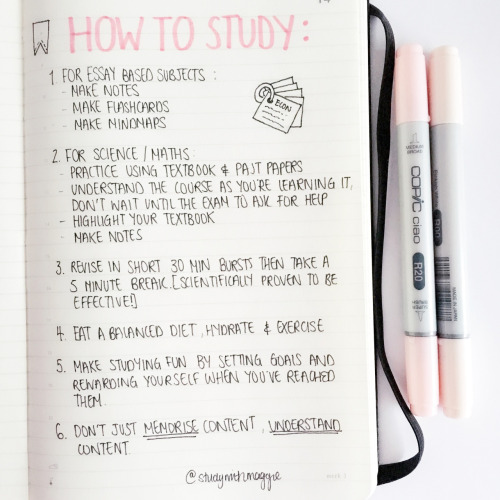 HOW TO STUDY:
1. FOR ESSAY BASED SUBJECTS:
- MAKE NOTES
- MAKE FLASHCARDS
- MAKE MINDMAPS
ECON
2. FOR SCIENCE / MATHS:
- PRACTICE USING TEXTBOOK & PAST PAPERS
- UNDERSTAND THE COURSE AS YOU'RE LEARNING IT,
DON'T WAIT UNTIL THE EXAM TO ASK FOR HELP
- HIGHLIGHT YOUR TEXTBOOK
- MAKE NOTES
3. REVISE IN SHORT 30 MIN BURSTS THEN TAKE A
5 MINUTE BREAK. [SCIENTIFICALLY PROVEN TO BE
EFFECTIVE!]
4. EAT A BALANCED DIET, HYDRATE & EXERCISE
5. MAKE STUDYING FUN BY SETTING GOALS AND
REWARDING YOURSELF WHEN YOU'VE REACHED
THEM.
6. DON'T JUST MEMORISE CONTENT, UNDERSTAND
CONTENT.
@studywithmaggie
MEDIUM
BROAD
COPIC ciao
R20
SUPER
BRUSH
R00
MADE IN JAPAN